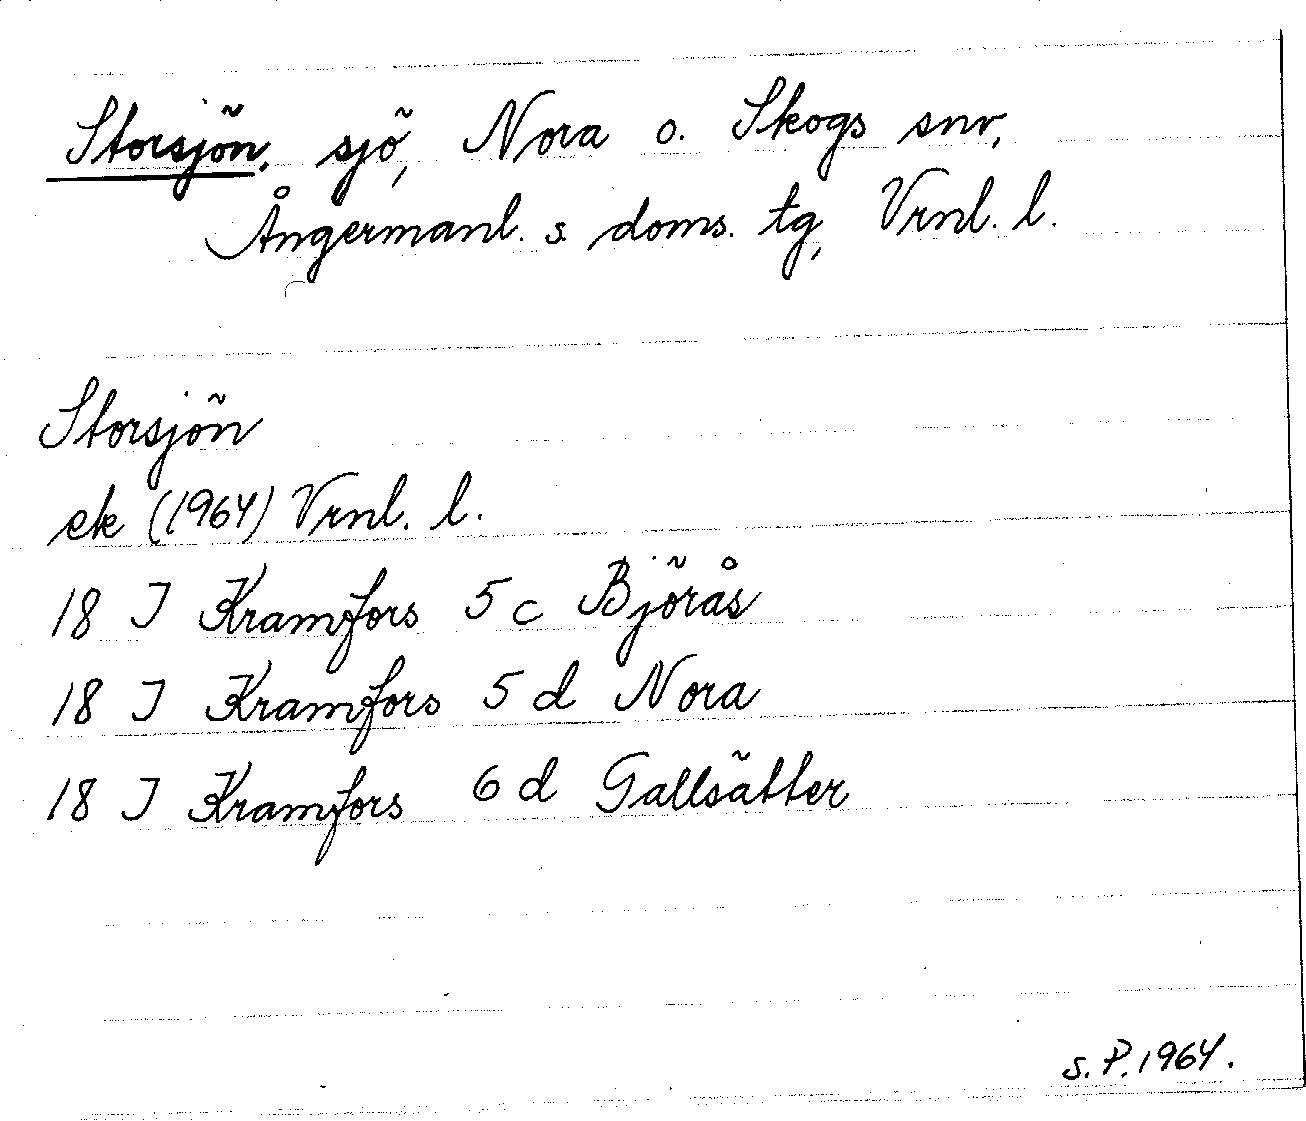 Storsjön, sjö, Nora o. Skogs snr,
Ångermanl. s. doms. tg, Vrnl. l.
Storsjön
ek (1964) Vrnl. l.
18 I Kramfors 5 c Björås
18 I Kramfors 5 d Nora
18 I Kramfors 6 d Gallsätter
S.P. 1964.